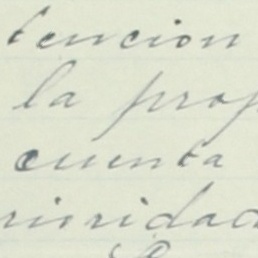 tencion
la prop
cuenta
rioridad